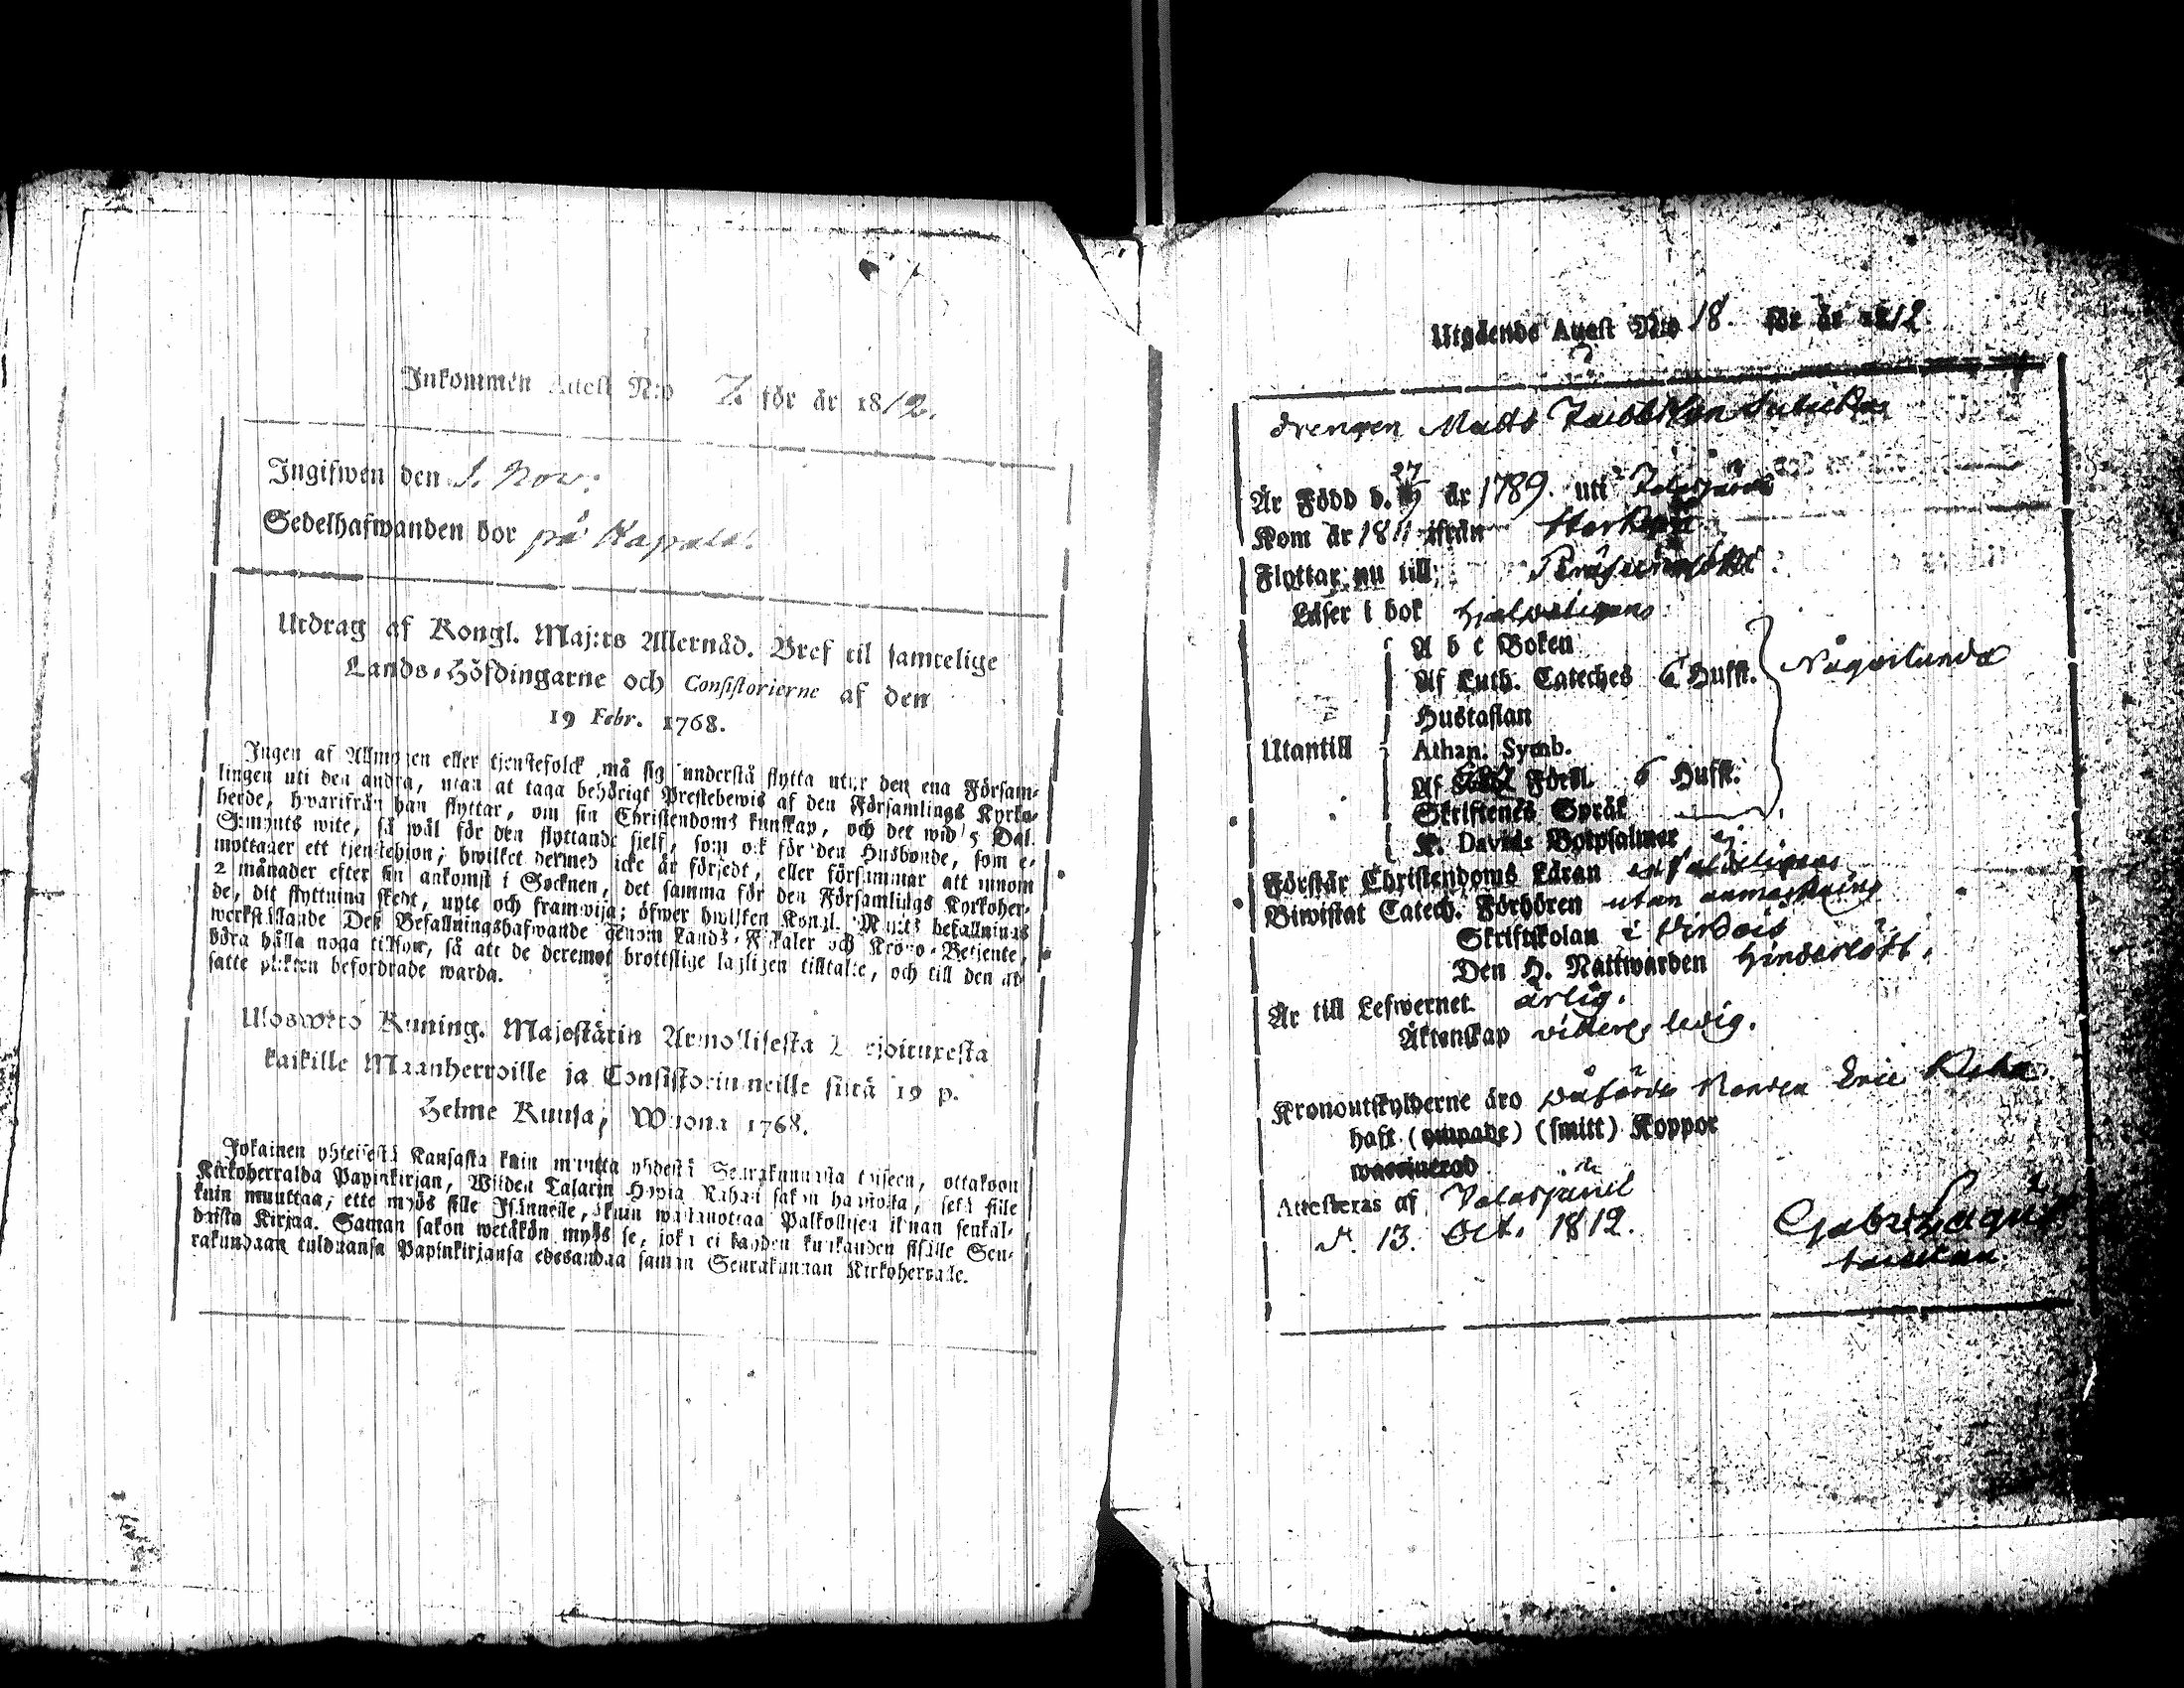 Inkommen Attest N:o 7. för år 1812.
Ingifwen den 1. Nov:
Sedelhafwanden bor på Kapele.
Utdrag af Kongl. Maj:ts Allernåd. Bref til samtelige
Lands-Höfdingarne och Consistorierne af den
19 Febr. 1768.
Ingen af Allmogen eller tjenstefolck må sig understå flytta utur den ena Försam-
lingen uti den andra, utan at taga behörigt Prestebewis af den Församlings Kyrko-
herde, hwarifrån han flyttar, om sin Christendoms kunskap, och det wid 5 Dal.
S:mynts wite, så wäl för den flyttande sielf, som ock för den Husbonde, som e-
mottager ett tjenstehjon; hwilket dermed icke är försedt, eller försummar att innom
2 månader efter sin ankomst i Socknen, det samma för den Församlings Kyrkoher-
de, dit flyttning skedt, upte och framwisa; öfwer hwilken Kongl. Maj:ts befallnings
werkställande Dess Befallningshafwande genom Lands-Fiskaler och Krono-Betjente,
böra hålla noga tilsyn, så att de deremot brottslige lagligen tilltalte, och till den ut-
satte plikten befordrade warda.
Ulosweto Kuning. Majestätin Armollisesta Kirjoituxesta
kaikille Maanherroille ja Consistoriumeille siitä 19 p.
Helme Kuusa, Wuona 1768.
Jokainen yhteisestä Kansasta kuin muutta yhdestä Seurakunnasta toiseen, ottakoon
Kirkoherralda Papinkirjan, Wijden Talarin Hopia Rahan sakon haastolla, sekä sille
kuin muuttaa, ette myös sille Isännelle, kuin wastanottaa Palkollisen ilman senkal-
daista Kirjaa. Saman sakon wetäkön myös se, joka ei kahden kuukauden sisälle Seu-
rakundaan tulduansa Papinkirjansa edesandaa saman Seurakunnan Kirkoherralle.
Utgående Attest N:o 18. för år 1812.
drengen Matts
Är Född d. 27 år 1789. uti
Kom år 1811 ifrån
Flyttar nu till
Läser i bok
A b c Boken
Af Luth. Cateches 6 Hufst. Någorlunda
Hustaflan
Utantill Athan. Symb.
Af Förkl. 6 Hufst.
Skriftenes Språk
K. Davids Botpsalmer ej
Förstår Christendoms Läran enfaldeligen
Biwistat Catech. Förhören utan anmärkning
Skriftskolan i Virdois
Den H. Nattwarden hinderlöst.
Är till Lefwernet ärlig.
Äktenskap vitterl. ledig.
Kronoutskylderne äro påförde Bonden Eric
haft (ympade) (smitt) Koppor
waccinerad
Attesteras af
d. 13. Oct. 1812.
Gabr. Lagus